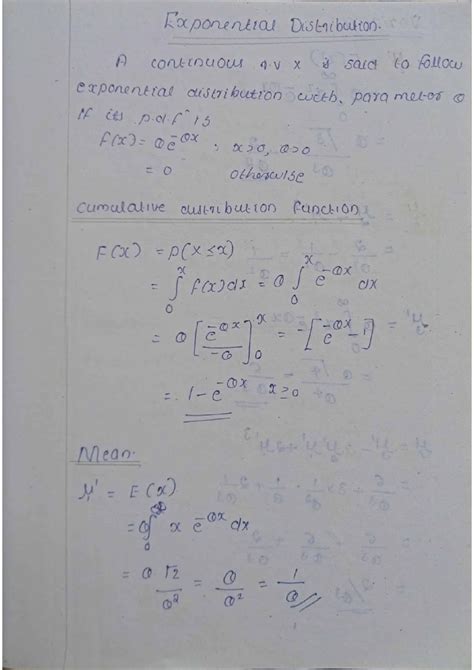 Exponential Distribution.
A continuous r.v X is said to follow
exponential distribution with parameter θ
if its p.d.f is
f(x) = θe^-θx ; x>0, θ>0
= 0 otherwise
Cumulative distribution function
F(x) = P(X ≤ x)
= ∫_0^x f(x) dx = θ ∫_0^x e^-θx dx
= θ [e^-θx / -θ]_0^x = -[e^-θx - 1]
= 1 - e^-θx x ≥ 0
Mean.
μ' = E(x)
= θ∫_0^∞ x e^-θx dx
= θ √2 / θ^2 = θ / θ^2 = 1 / θ